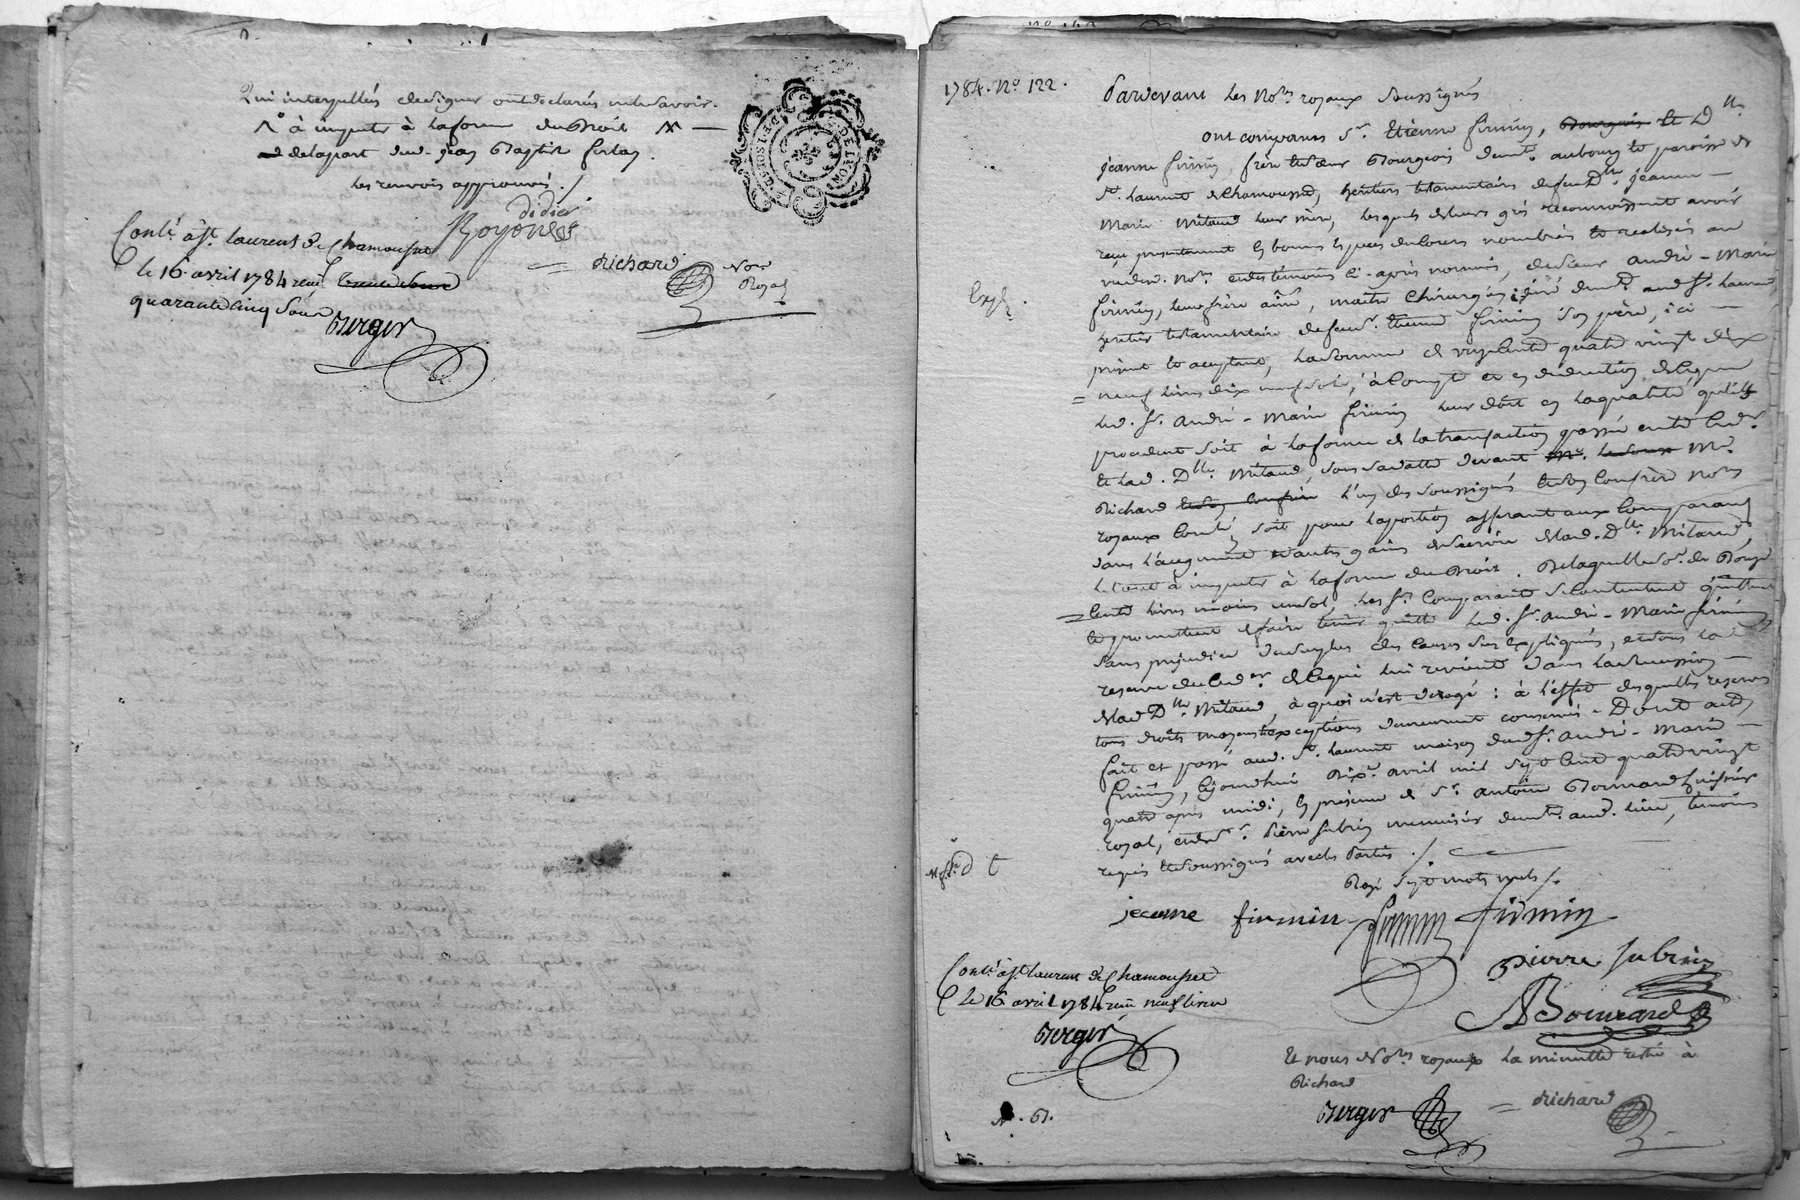 Qui interpellés de signer ont déclarés ne le savoir.
à imputer à la forme du Droit
de la part dud. jean Baptiste
les renvois approuvés ./
didier
Contlé à St. laurent de Chamousset
le 16 avril 1784 reçu
quarante cinq Sous
Berger
Richard
Nore
Royal
1784. No 122.
Pardevant les Nores royaux Soussignés
ont comparus Sr. Etienne firmin, Bourgeois et Dlle
jeanne firmin, frère et sœur Bourgeois demts. au bourg et paroisse de
St. laurent de Chamousset, heritiers testamentaires de feue Dlle jeanne
Marie Mitaud leur mère, lesquels de leurs grés reconnoissent avoir
reçu presentement en bonnes especes de cours nombrées et realisées au
vu des Nores et des témoins ci-après nommés, de Sieur andré-Marie
firmin, leur frère aîné, maitre Chirurgien juré demt. aud St. laurent,
heritier testamentaire de feu Sr. firmin Son père, ici
présent et acceptant, la somme de cent quatre vingt dix
neuf livres dix neuf sols, à Compte et en déduction de ce que
led. Sr. andré-Marie firmin leur doit en la qualité qu'ils
procedent soit à la forme de la transaction passée entre led. Sr
et lad. Dlle Mitaud, sous sa datte devant Me. Mr.
Richard et son confrère l'un des soussignés et son Confrère Nores
royaux Contlé, soit pour la portion afferant aux Comparans
dans l'augment et autres gains de survie de lad. Dlle Mitaud,
le tout à imputer à la forme du Droit. De laquelle so. de
cents livres moins un sol, les Srs. Comparants se contentent quittent
et promettent de faire tenir quitte led. Sr. andré-Marie firmin
sans prejudice du surplus des causes sus expliquées, et sous la
reserve de ce qui lui revient dans la succession
de lad Dlle. Mitaud, à quoi n'est derogé: à l'effet desquelles reserves
tous droits moyens et exceptions demeurent conservés. Dont acte
fait et passé aud. St. laurent maison dud Sr. andré-Marie
firmin, cejourd'hui Dixe. avril mil sept cent quatre vingt
quatre après midi, en présence de Sr. antoine Bornand huissier
royal, et de Sr. Pierre subrin menuisier demt. aud. lieu, témoins
requis et soussignés avec les parties ./.
Rayé sept mots nuls ./.
jeanne firmin firmin firmin
pierre subrin
Contlé à St laurent de Chamousset
le 16 avril 1784 reçu neuf livres
Berger
Et nous Nores royaux la minutte restée à
Richard
Berger Richard